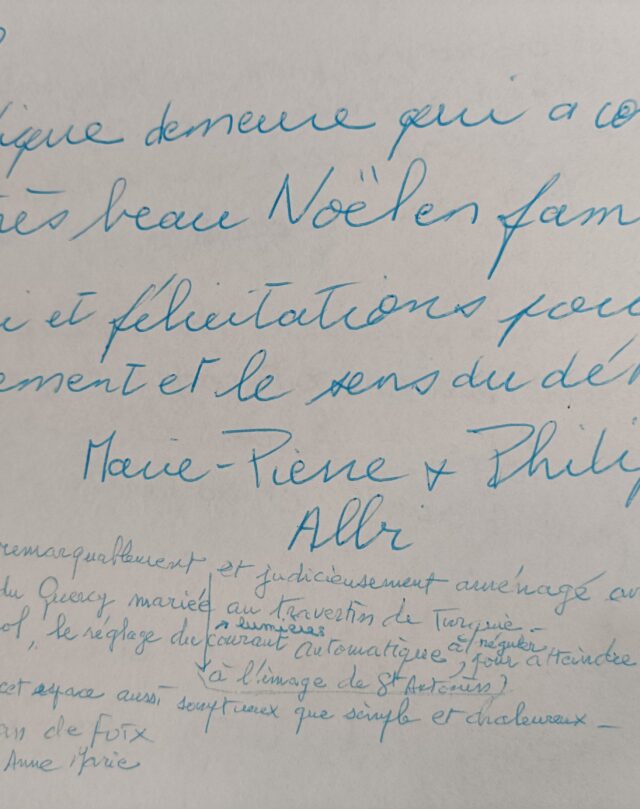 ique demeure qui a co
rès beau Noël en fam
i et félicitations pou
ement et le sens du dé
Marie-Pierre + Phili
Albi
remarquablement et judicieusement aménagé av
du Quercy mariée au travertin de Turquie -
+ lumières
ol, le réglage du courant automatique à réguler, pour atteindre
(à l'image de St Antonin)
cet espace aussi somptueux que simple et chaleureux -
an de Foix
Anne Marie